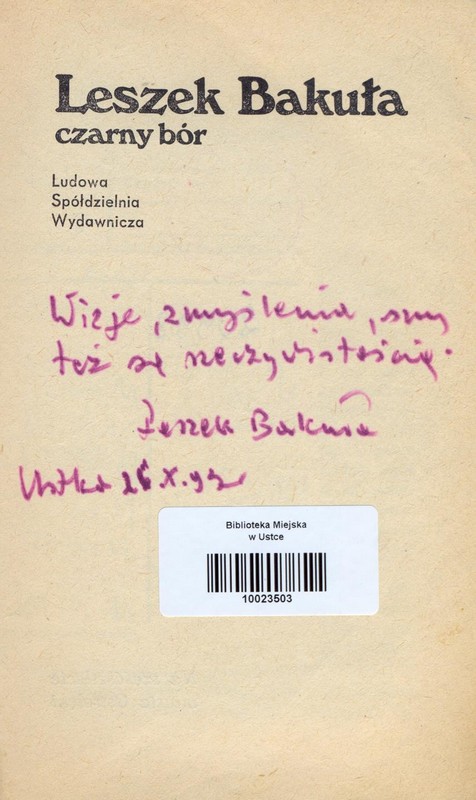 Leszek Bakuła
czarny bór
Ludowa
Spółdzielnia
Wydawnicza
Wizje, zmyślenia, sny
też są rzeczywistością.
Leszek Bakuła
Ustka X.92
Biblioteka Miejska
w Ustce
10023503